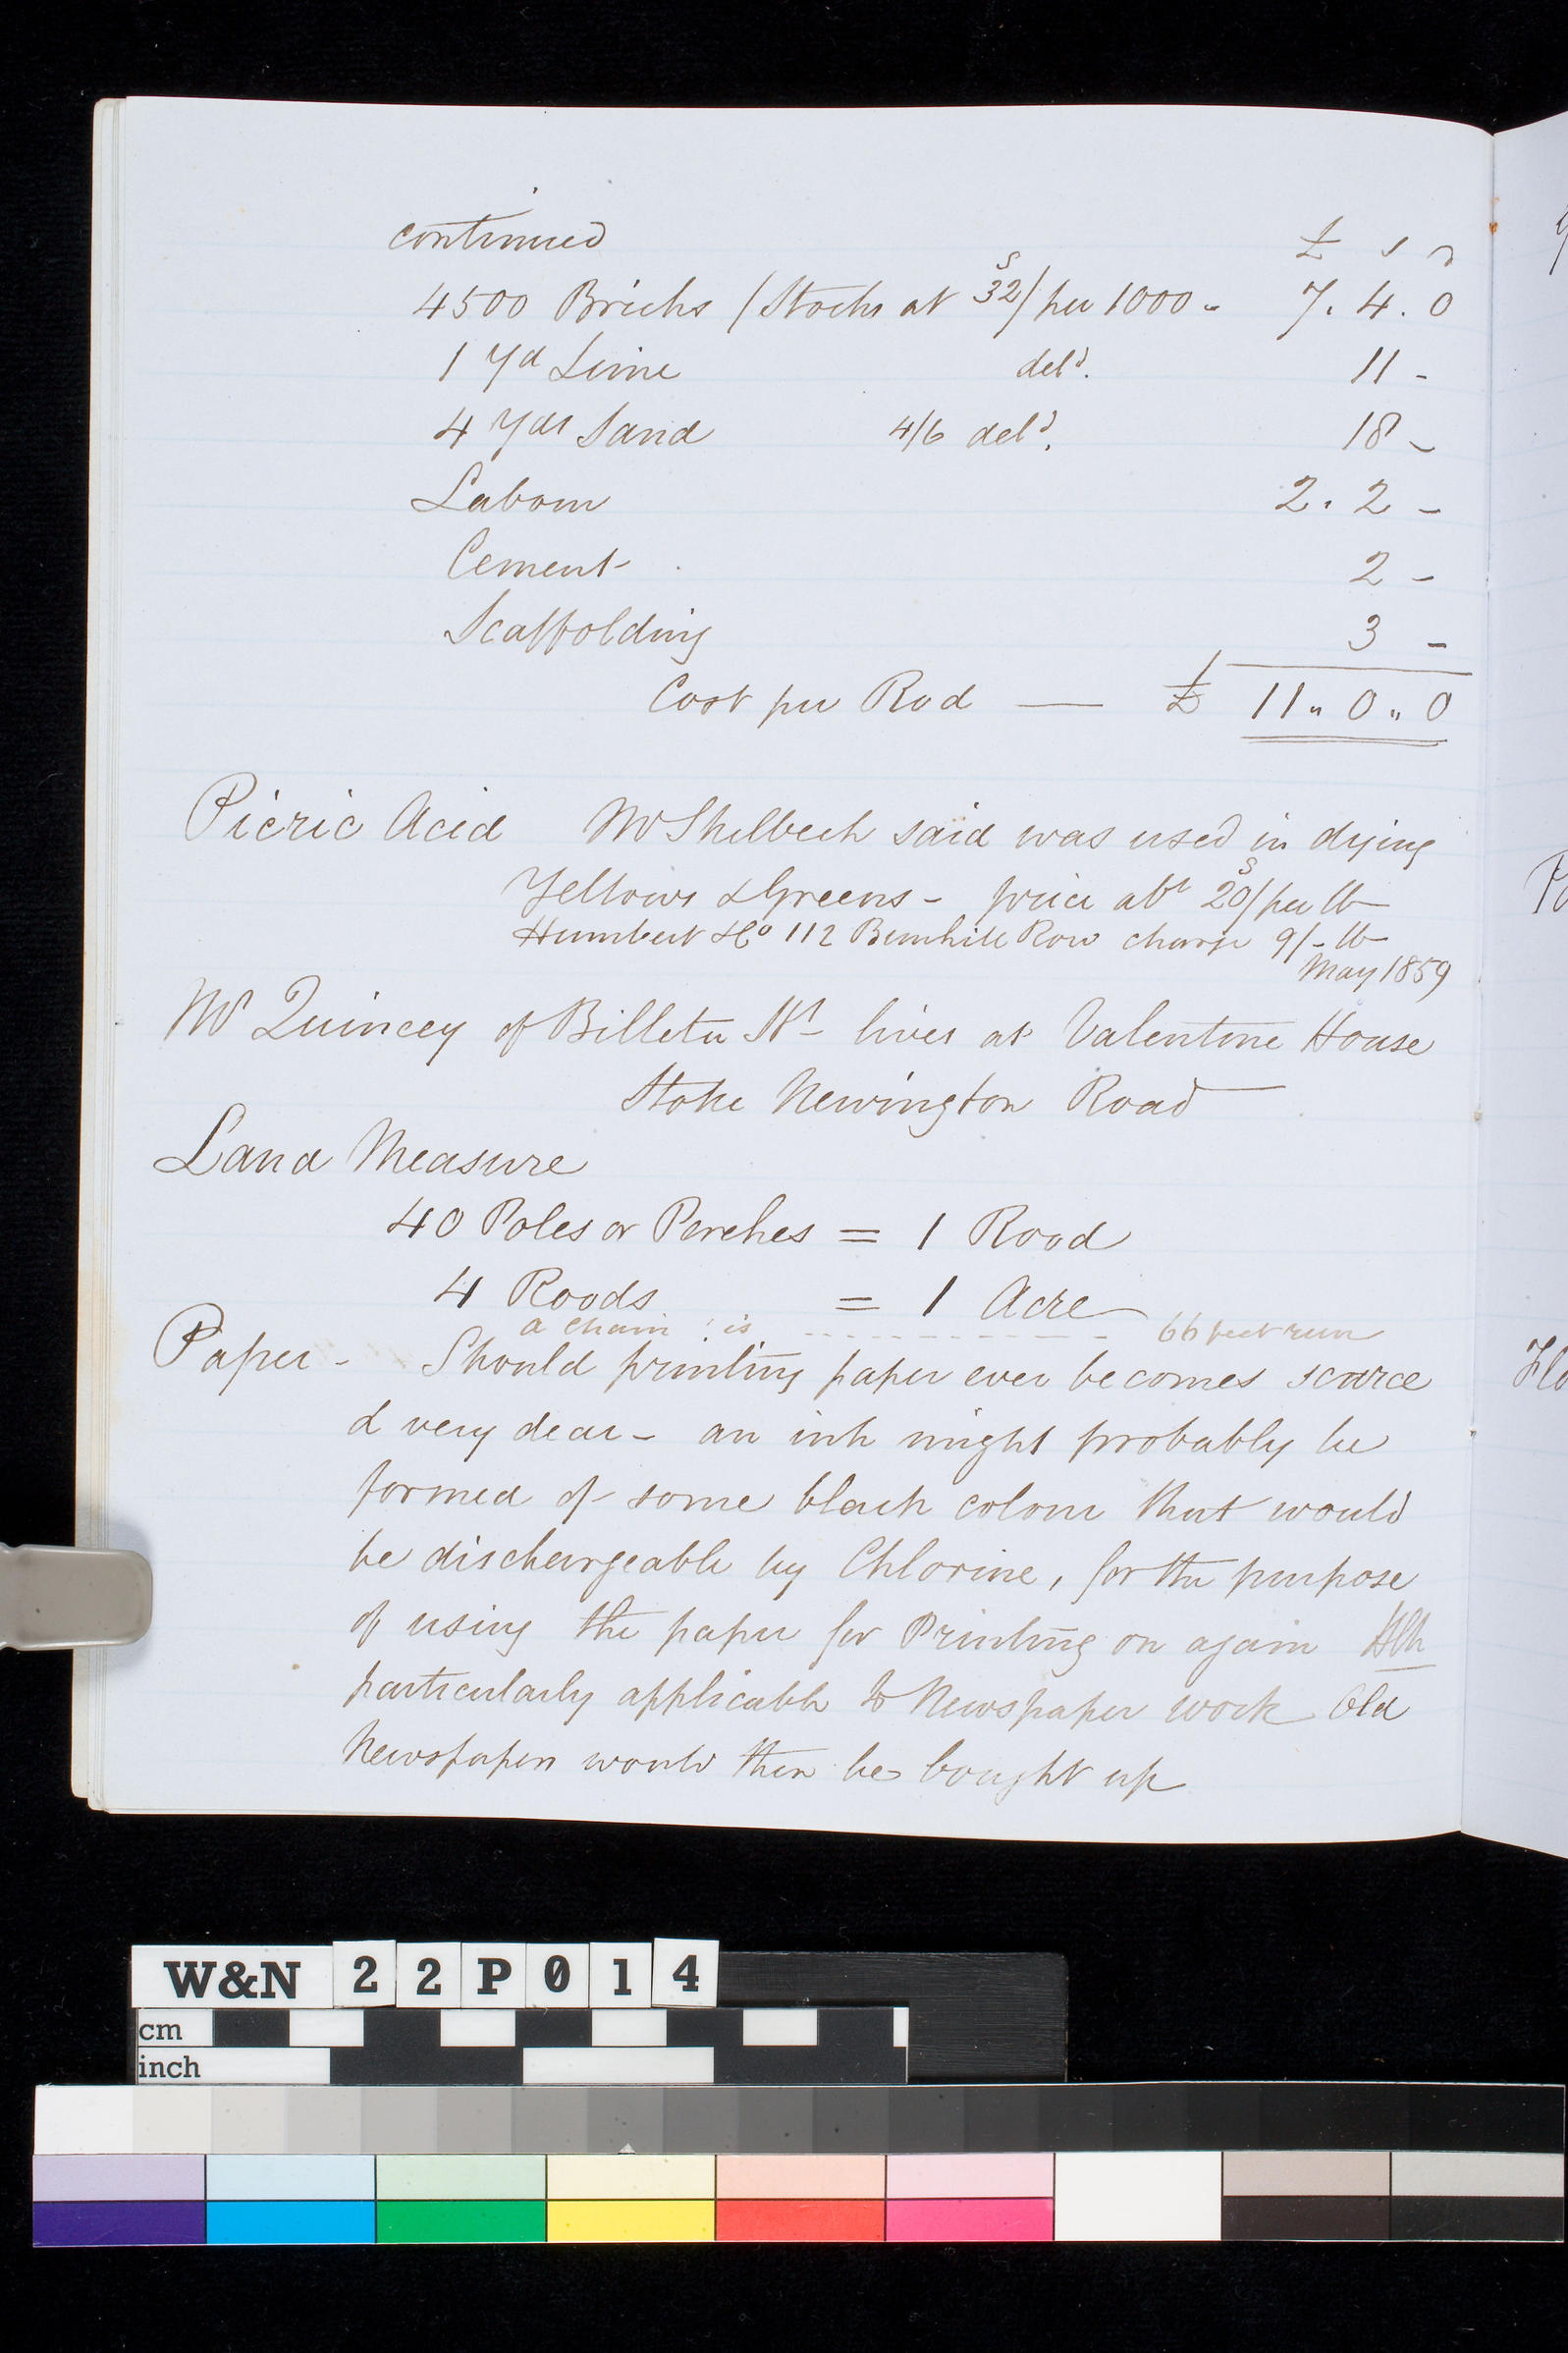 continued £ s d
4500 Bricks (Stocks at 32/ˢ per 1000 - 7. 4. 0
1 Yd Lime delᵈ. 11 -
4 Yds Sand 4/6 delᵈ. 18 -
Labour 2. 2 -
Cement 2 -
Scaffolding 3 -
Cost per Rod — £ 11 " 0 " 0
Picric Acid Mr Skelbech said was used in dying
Yellows & Greens - price abᵗ 20/ˢ per lb
Humbert & Cᵒ 112 Bunhill Row charge 9/- lb
May 1859
Mr Quincey of Billeter Sᵗ lives at Valentine House
Stoke Newington Road
Land Measure
40 Poles or Perches = 1 Rood
4 Roods = 1 Acre
a chain is - - - - - - - - - - 66 feet run
Paper - Should printing paper ever becomes scarce
& very dear - an ink might probably be
formed of some black colour that would
be dischargeable by Chlorine, for the purpose
of using the paper for Printing on again
particularly applicable to Newspaper work Old
Newspapers would then be bought up
W&N 22P014
cm
inch